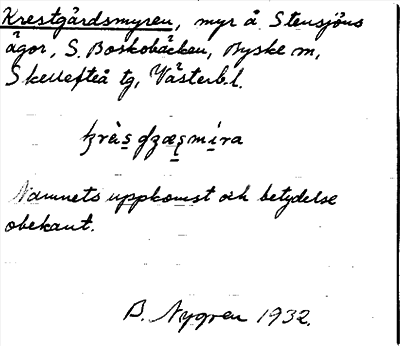 Krestgårdsmyren, myr å Stensjöns
ägor, S. Boskobäcken, Byske sn,
Skellefteå tg, Västerb. l.
Namnets uppkomst och betydelse
obekant.
B. Nygren 1932.